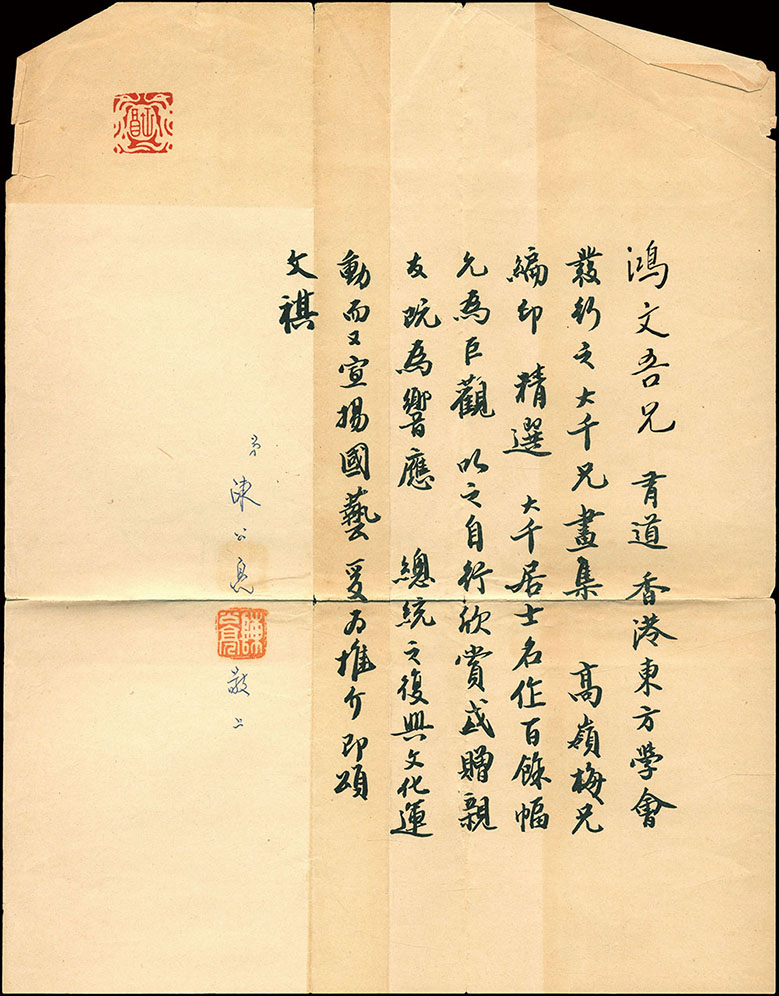 鴻文吾兄 青道 香港東方學會
發行之大千兄畫集 高嶺梅兄
編印 精選 大千居士名作百餘幅
允為巨觀 以之自行欣賞或贈親
友既為響應 總統之復興文化運
動而又宣揚國藝 爰為推介 即頌
文祺
弟
陳公亮
敬上